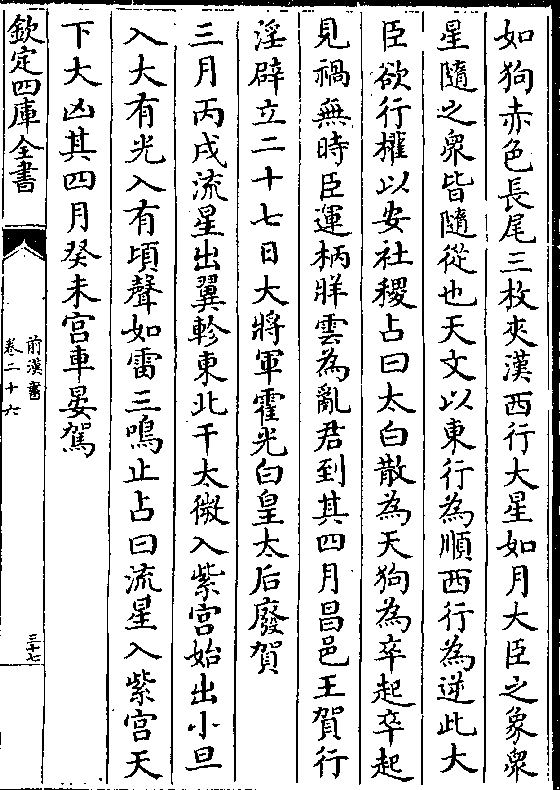 如狗赤色長尾三枚夾漢西行大星如月大臣之象衆
星隨之衆皆隨從也天文以東行為順西行為逆此大
臣欲行權以安社稷占曰太白散為天狗為卒起卒起
見禍無時臣運柄牂雲為亂君到其四月昌邑王賀行
淫辟立二十七日大將軍霍光白皇太后廢賀
三月丙戌流星出翼軫東北干太微入紫宫始出小旦
入大有光入有頃聲如雷三鳴止占曰流星入紫宫天
下大凶其四月癸未宫車晏駕
欽定四庫全書
前漢書
卷二十六
三十七